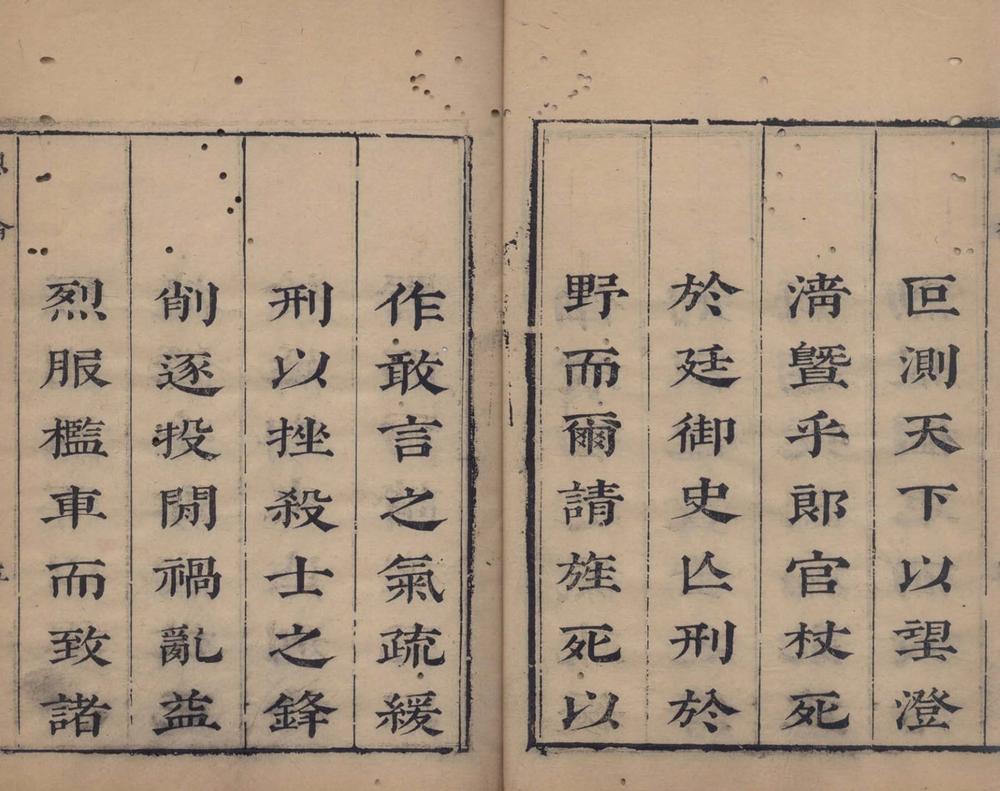 叵測天下以望澄
淸曁乎郞官杖死
於廷御史亾刑於
野而爾請旌死以
作敢言之氣疏緩
刑以挫殺士之鋒
削逐投閒禍亂益
烈服檻車而致諸